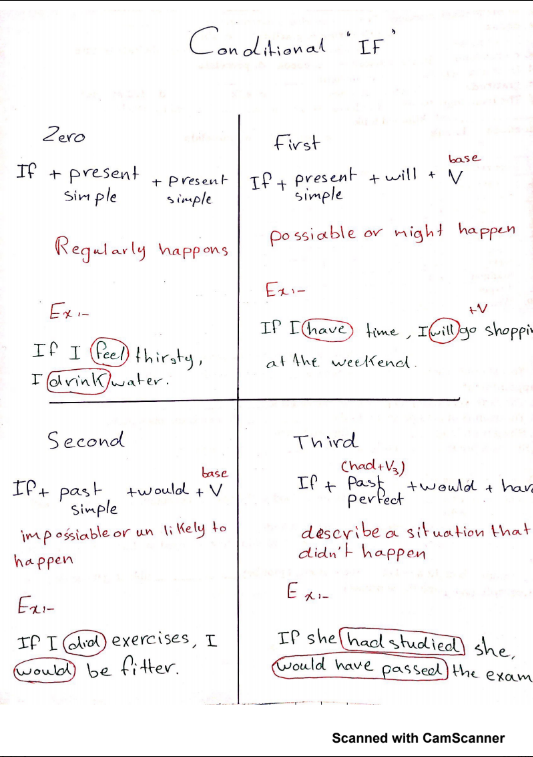 Conditional 'IF'
Zero
If + present + present
simple simple
Regularly happons
Ex:-
If I feel thirsty,
I drink water.
First
base
If + present + will + V
simple
possiable or might happen
Ex:-
+V
If I have time, I will go shoppi
at the weekend.
Second
base
If + past +would + V
simple
impossiable or un likely to
happen
Ex:-
If I did exercises, I
would be fitter.
Third
(had+V3)
If + Past +would + hav
perfect
describe a situation that
didn't happen
Ex:-
If she had studied she,
would have passed the exam
Scanned with CamScanner